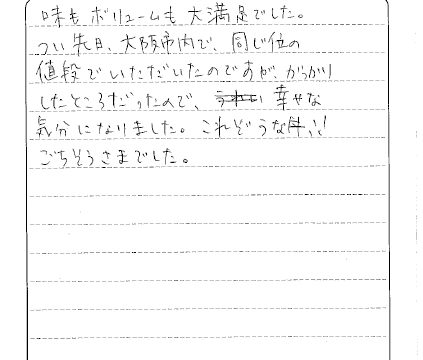 味もボリュームも大満足でした。
つい先日、大阪市内で、同じ位の
値段でいただいたのですが、がっかり
したところだったので、幸せな
気分になりました。これぞうな丼!!
ごちそうさまでした。